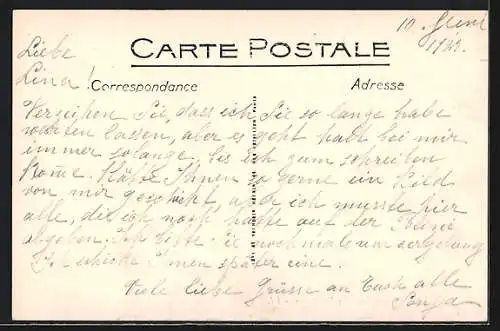 10. Juni
Liebe
CARTE POSTALE
Lina!
Correspondance
Adresse
Verzeihen Sie, dass ich Sie so lange habe
warten lassen, aber es geht halt bei mir
immer so lange bis ich zum schreiben
kome. Hätte Ihnen so gerne ein Bild
von mir geschickt, aber ich musste hier
alle, die ich noch hatte auf der
abgeben. Ich bitte Sie nochmals um
Ich schicke Ihnen später eine.
Viele liebe Grüsse an Euch alle